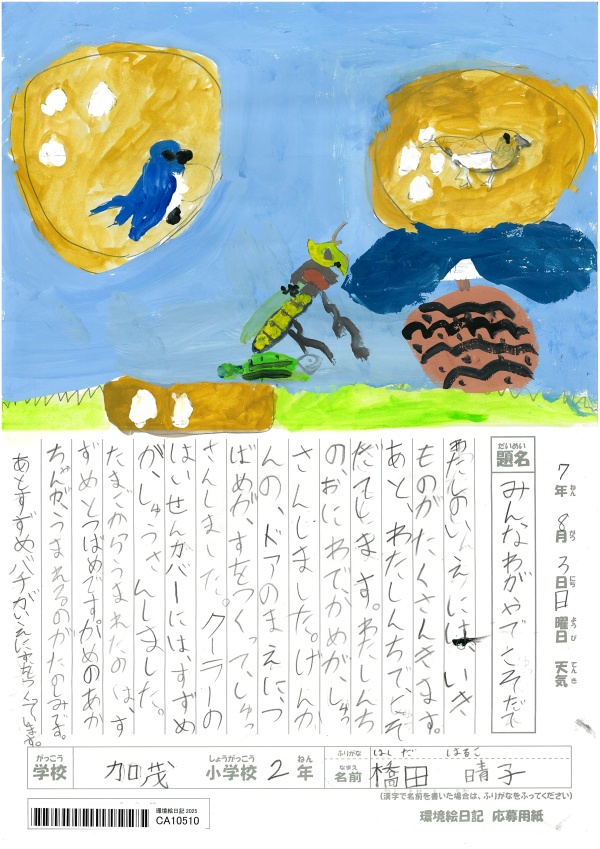 7年 8月 3日 日曜日 天気
ねん がつ にち ようび てんき
だいめい
題名 みんなわがやでこそだて
わたしのいえには、いき
ものがたくさんきます。
あと、わたしんちで、こそ
だてします。わたしんち
の、おにわで、かめが、しゅっ
さんしました。げんか
んの、ドアのまえに、つ
ばめが、すをつくって、しゅっ
さんしました。クーラーの
はいせんカバーには、すずめ
が、しゅっさんしました。
たまごからうまれたのは、す
ずめとつばめです。かめのあか
ちゃんが、うまれるのがたのしみです。
あとすずめバチがいえにすをつくっています。
がっこう しょうがっこう ねん
学校 加茂 小学校 2年
ふりがな はしだ はるこ
なまえ
名前 橋田 晴子
(漢字で名前を書いた場合は、ふりがなをふってください)
環境絵日記 2025
CA10510
環境絵日記 応募用紙